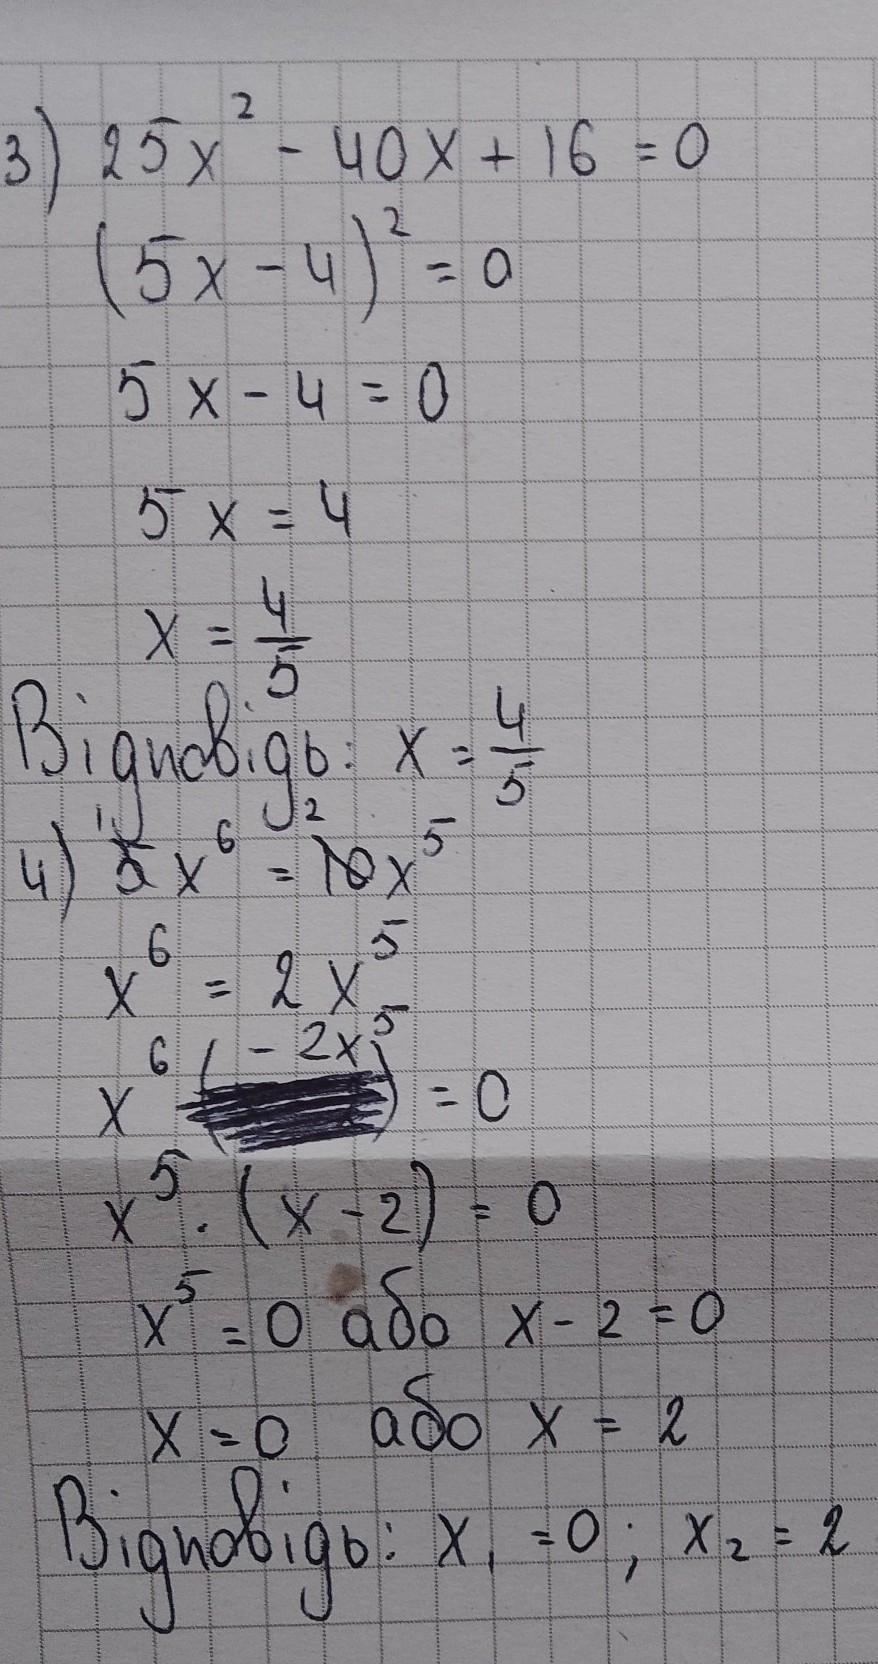 3) 25x² - 40x + 16 = 0
(5x - 4)² = 0
5x - 4 = 0
5x = 4
x = 4/5
Відповідь: x = 4/5
4) 5x⁶ = 10x⁵
x⁶ = 2x⁵
x⁶ - 2x⁵ = 0
x⁵ · (x - 2) = 0
x⁵ = 0 або x - 2 = 0
x = 0 або x = 2
Відповідь: x₁ = 0; x₂ = 2